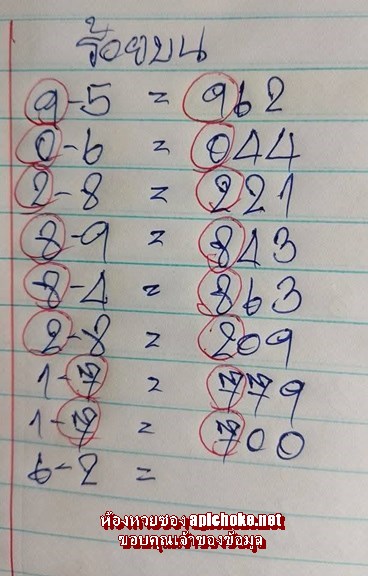 ร้อยบน
9-5 = 962
0-6 = 044
2-8 = 221
8-9 = 843
8-4 = 863
2-8 = 209
1-7 = 779
1-7 = 700
6-2 =
ห้องหวยซอง apichoke.net
ขอบคุณเจ้าของข้อมูล